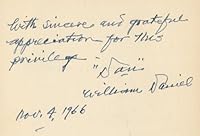 With sincere and grateful
appreciation for this
privilege
"Dan"
William Daniel
Nov. 4, 1966